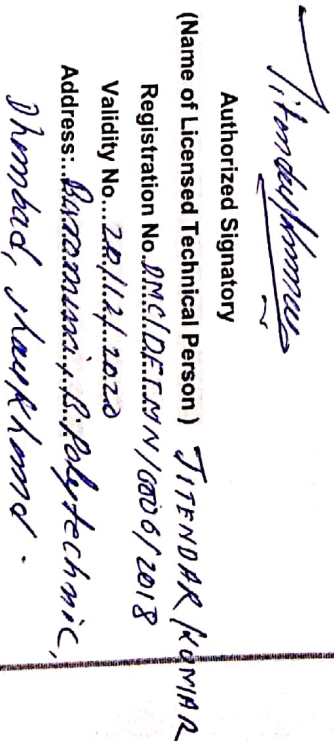 Jitendar Kumar
Authorized Signatory
(Name of Licensed Technical Person) JITENDAR KUMAR
Registration No. DMC/DETMN/0006/2018
Validity No....20/12/2020
Address:...Polytechnic,
Dhanbad, Jharkhand.